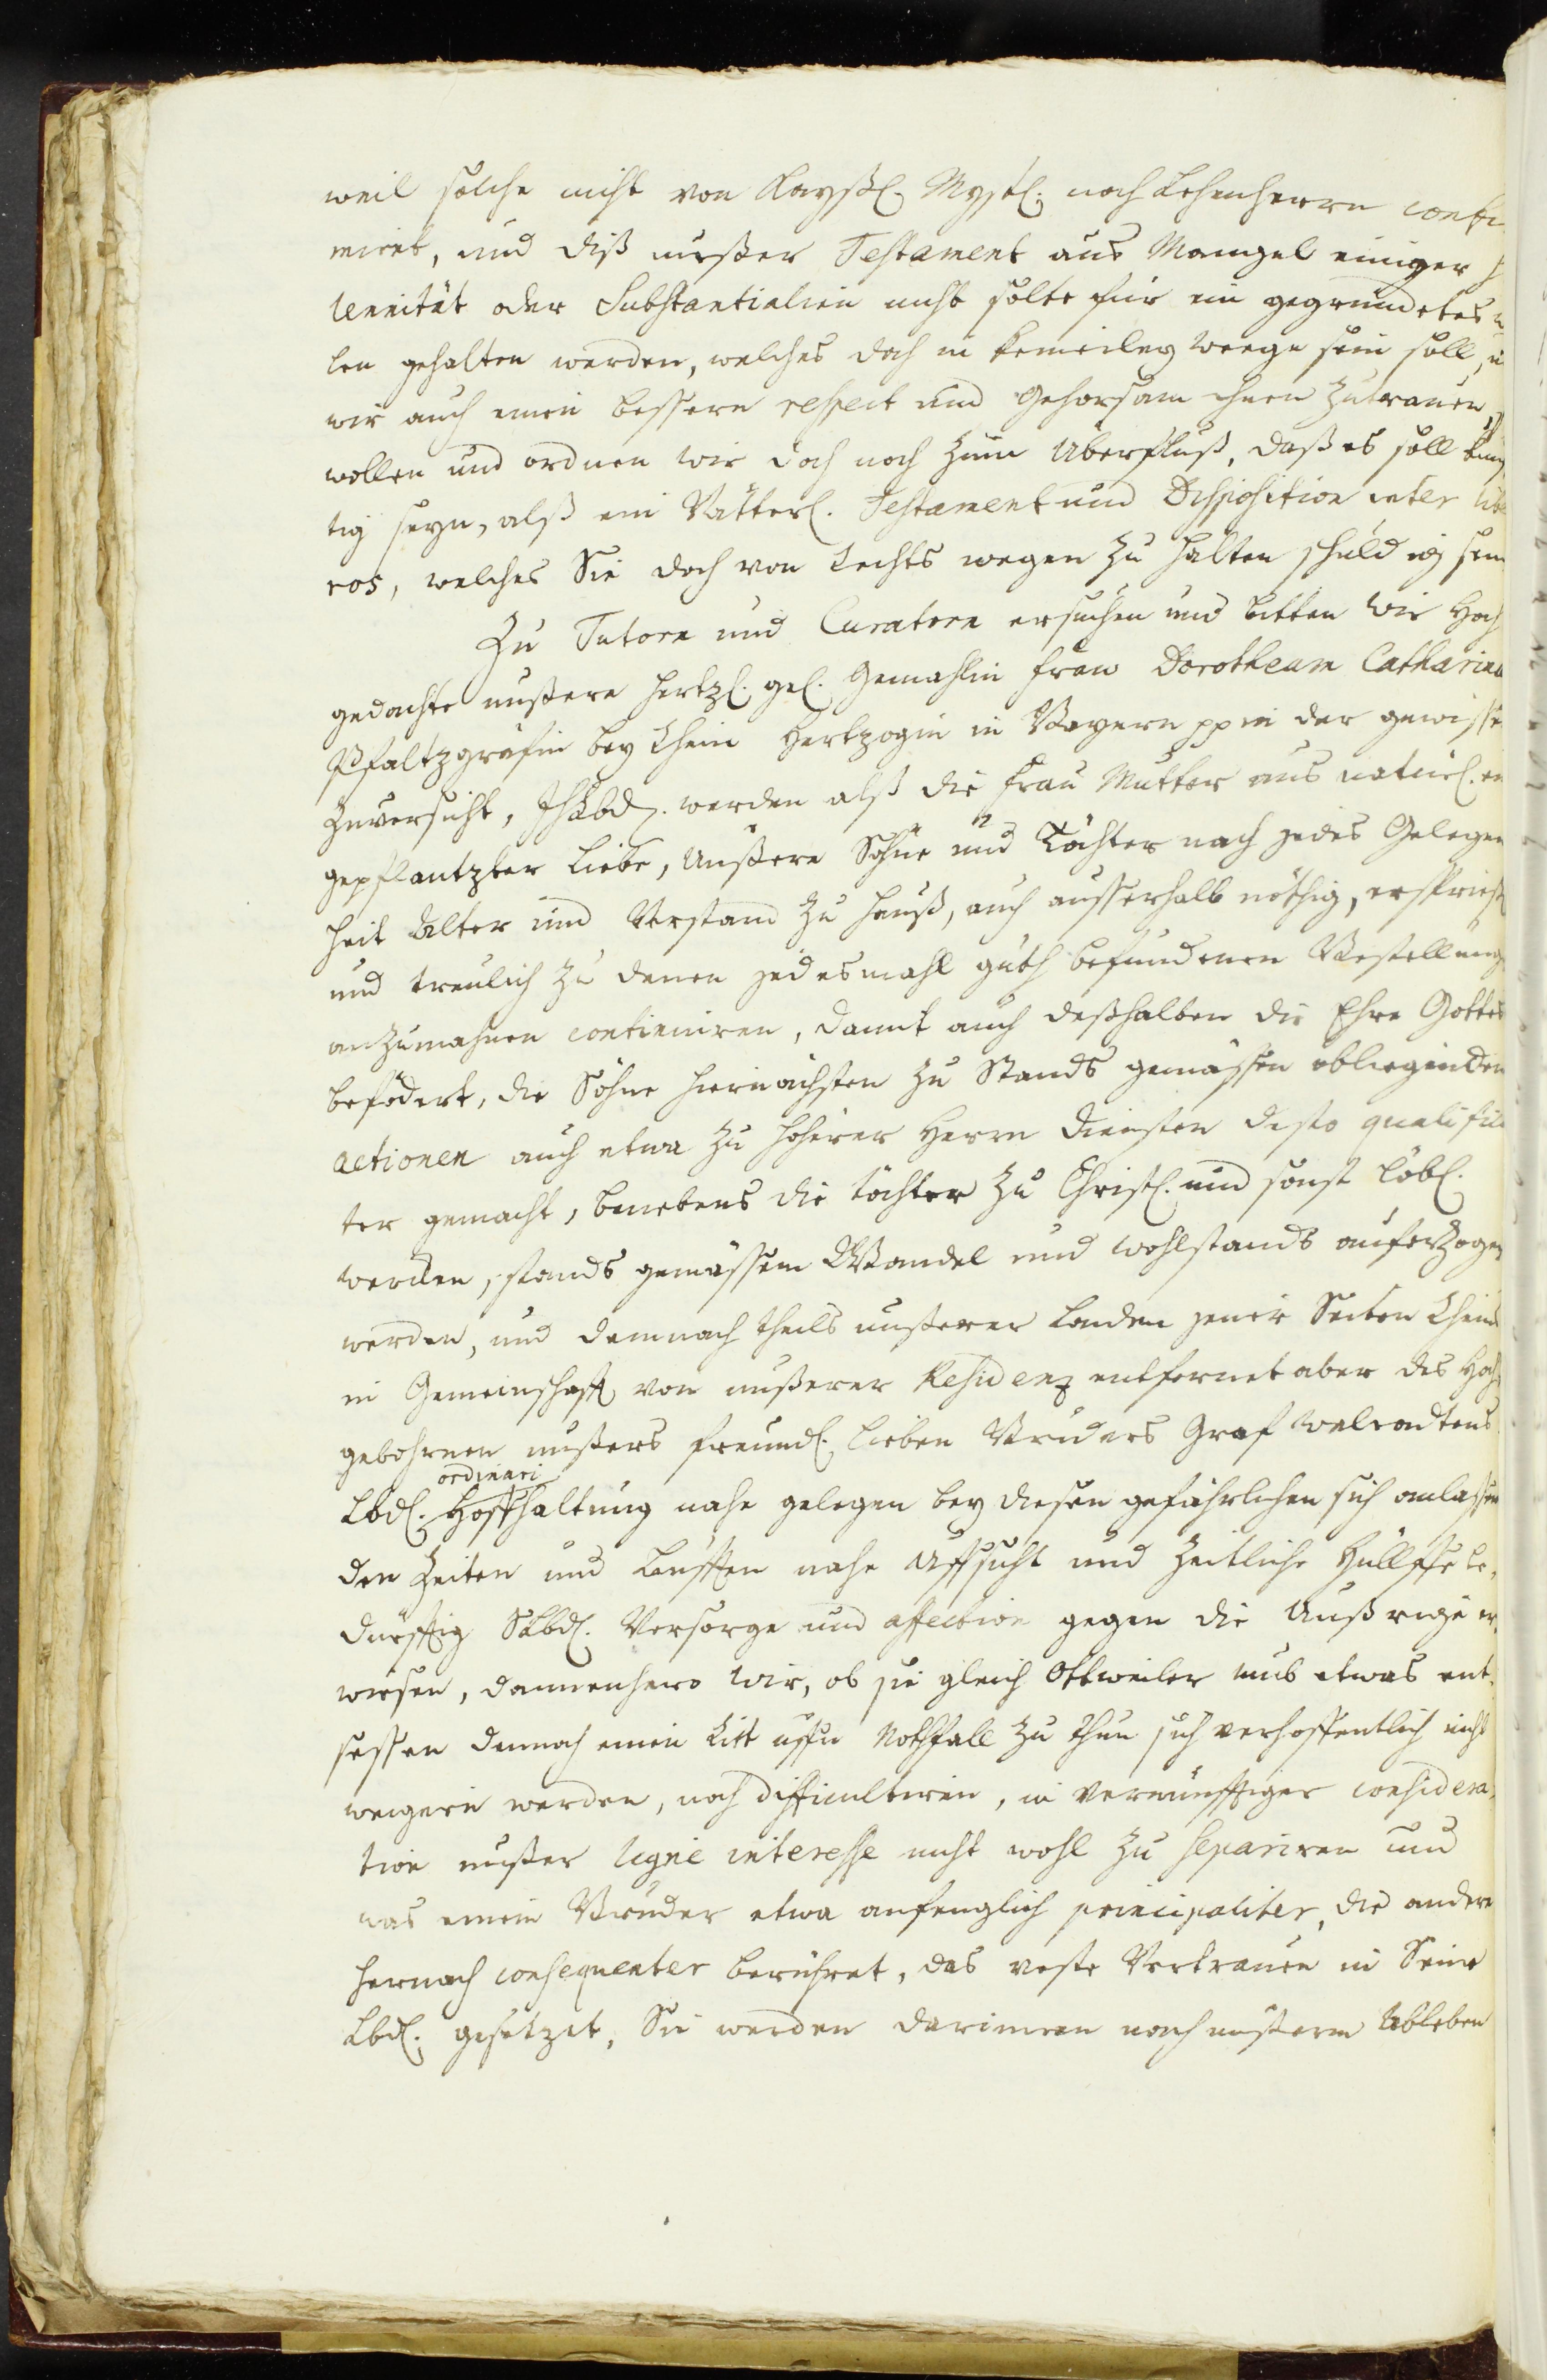 weil solche nicht von Kayßl. Mystl. noch Lehenherrn confir
mirt, und diß unßer Testament aus Mangel einiger
lennität oder Substantialien nicht solte für ein gegründetes
len gehalten werden, welches doch in keinerley weege sein soll,
wir auch einen bessern respect und Gehorsam ihnen zutrauen,
wollen und ordnen wir doch noch zum Überfluß, daß es soll künff
tig seyn, alß ein Vätterl. Testament und Disposition inter libe
ros, welches Sie doch von Rechts wegen zu halten schuldig sein
Zu Tutorn und Curatorn ersuchen und bitten wir hoch
gedachte unßere hertzl. gel. Gemahlin fraw Dorotheam Catharina
Pfaltzgräfin bey Rhein Hertzogin in Bayern pp in der gewisse
Zuversicht, Ihr Lbd. werden alß die Frau Mutter aus natürl. ein
gepflantzter Liebe, Unßere Söhne und Töchter nach jedes Gelegen
heit Alter und Verstand zu Hauß, auch ausserhalb nöthig, ersprießl
und treulich zu denen jedesmahl guth befundenen Bestellung
anzumahnen continuiren, damit auch deßhalben die Ehre Gottes
befödert, die Söhne hiernächsten zu Stands gemässen obliegenden
actionen auch etwa zu höherer Herrn Diensten desto qualificir
ter gemacht, benebens die Töchter zu Christl. und sonst löbl.
werden, stands gemässem Wandel und wohlstands auferzogen
werden, und demnach theils unßerer Landen jener Seiten Rheins
in Gemeinschafft von unßerer Residenz entfernet aber des Hoch
gebohrnen unßers freundl. lieben Bruders Graf Walradtens
ordinari
Lbd. Hoffhaltung nahe gelegen bey diesen gefährlichen sich anlassen
den Zeiten und Läufften nahe Uffsicht und zeitliche Hüllffe be-
dürfftig SLbd. Vorsorge und affection gegen die Unßrige er-
wiesen, dannenhero wir, ob sie gleich Ottweiler umb etwas ent-
sessen dennoch einen Ritt uffn Nothfall zu thun sich verhoffentlich nicht
weigern werden, noch difficultiren, in vernünfftiger considera-
tion unßer ligne interesse nicht wohl zu separiren und
was einem Bruder etwa anfenglich principaliter, die andere
hernach consequenter berühret, das veste Vertrauen in Seine
Lbd. gesetzet, Sie werden darinnen nach unßerm Ableben